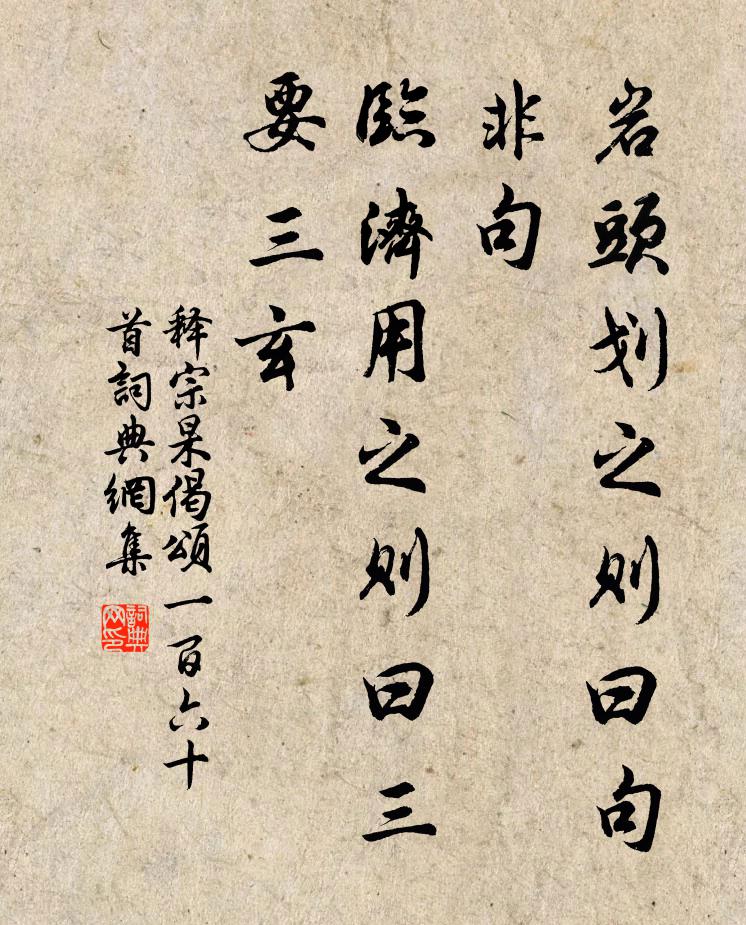 岩頭划之則曰句
非句
臨濟用之則曰三
要三玄
释宗杲偈頌一百六十
首詞典網集
詞典網印